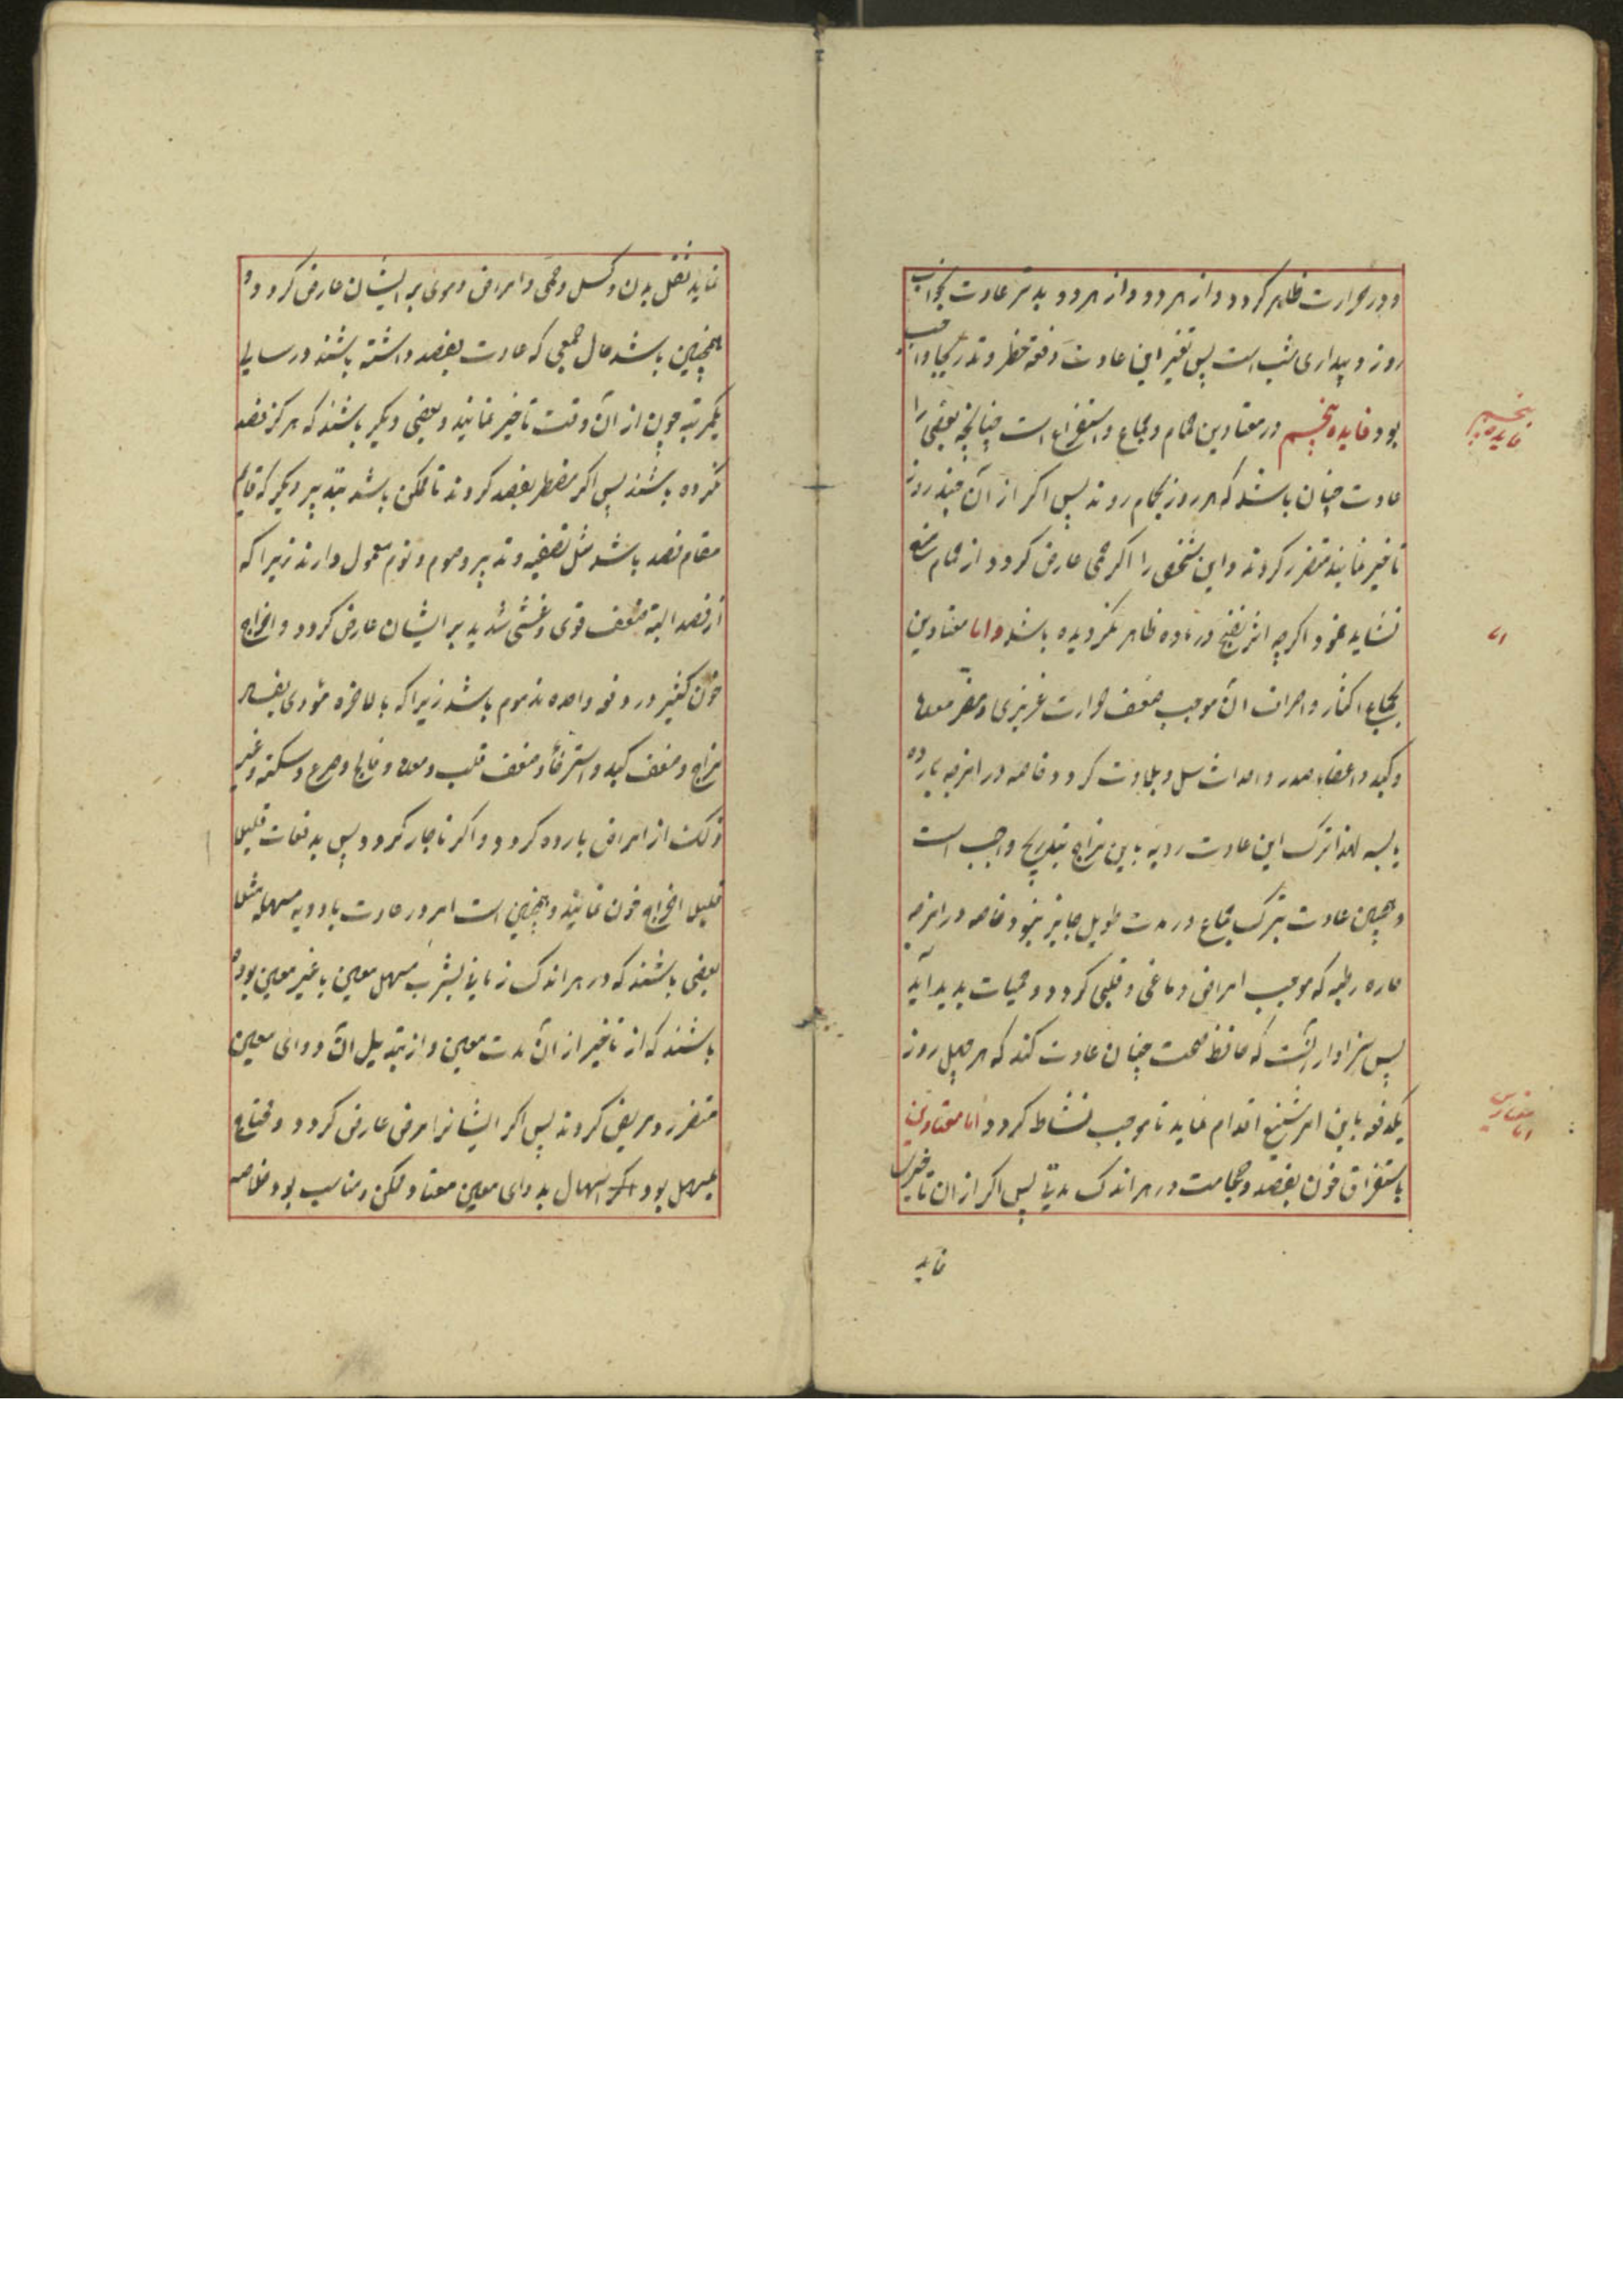 و در حرارت ظاهر کردد و از هر دو و از هر دو بدتر عادت بخواب
روز و بیداری شب است پس تغیر این عادت دفعة خطر و بتدریج واجب
بود فایده پنجم در معتادین حمام و جماع و استفراغ است چنانچه بعضی را
عادت چنان باشد که هر روز بحمام روند پس اکر از آن چند روز
تاخیر نمایند متضرر کردند و این شخص را اکر حمی عارض کردد از حمام منع
نشاید نمود اکرچه اثر نضج در ماده ظاهر نکردیده باشد و اما معتادین
بجماع اکثار و اسراف آن موجب ضعف حرارت غریزی و مضر معده
و کبد و اعضاء صدر و احداث سل و بلادت کردد خاصه در امزجه بارده
یابسه لهذا ترک این عادت ردیه باین مزاج بتدریج واجب است
و همچنین عادت بترک جماع در مدت طویل جایز نبود خاصه در امزجه
حاره رطبه که موجب امراض دماغی و قلبی کردد و حمیات پدید آید
پس سزاوار آنست که حافظ صحت چنان عادت کند که هر چهل روز
یکدفعه باین امر شنیع اقدام نماید تا موجب نشاط کردد اما معتادین
باستفراق خون بفصد و حجامت در هر اندک مدتی پس اکر از ان تاخیر
نماید
فایده پنجم
اما
اما معتادین
نماید ثقل بدن و کسل و حمی و امراض دموی بر ایشان عارض کردد و
همچنین باشد حال جمعی که عادت بفصد داشته باشند در سالی
یکمرتبه چون از آن وقت تاخیر نمایند و بعضی دیکر باشند که هرکز فصد
نکرده باشند پس اکر مضطر بفصد کردند تا ممکن باشد بتدبیر دیکر که قایم
مقام فصد باشد مثل تصفیه و تدبیر و صوم و نوم معمول دارند زیرا که
از فصد البته ضعف قوی و غشی شدید بر ایشان عارض کردد و اخراج
خون کثیر در دفعه واحده مذموم باشد زیرا که بالاخره مؤدی بفساد
مزاج و ضعف کبد و استرخاء و ضعف قلب و معده و فالج و صرع و سکته و غیر
ذلک از امراض بارده کردد و اکر ناچار کردد پس بدفعات قلیل
قلیل اخراج خون نمایند و همچنین است امر در عادت بادویه مسهله مثلا
بعضی باشند که در هر اندک زمانی بشرب مسهل معین یا غیر معین بوده
باشند که از تاخیر از آن مدت معین و از تبدیل آن دوای معین
متضرر و مریض کردند پس اکر ایشانرا مرضی عارض کردد و محتاج
بمسهل بود اکر اسهال بدوای معین معتاد ممکن و مناسب بود خاصه